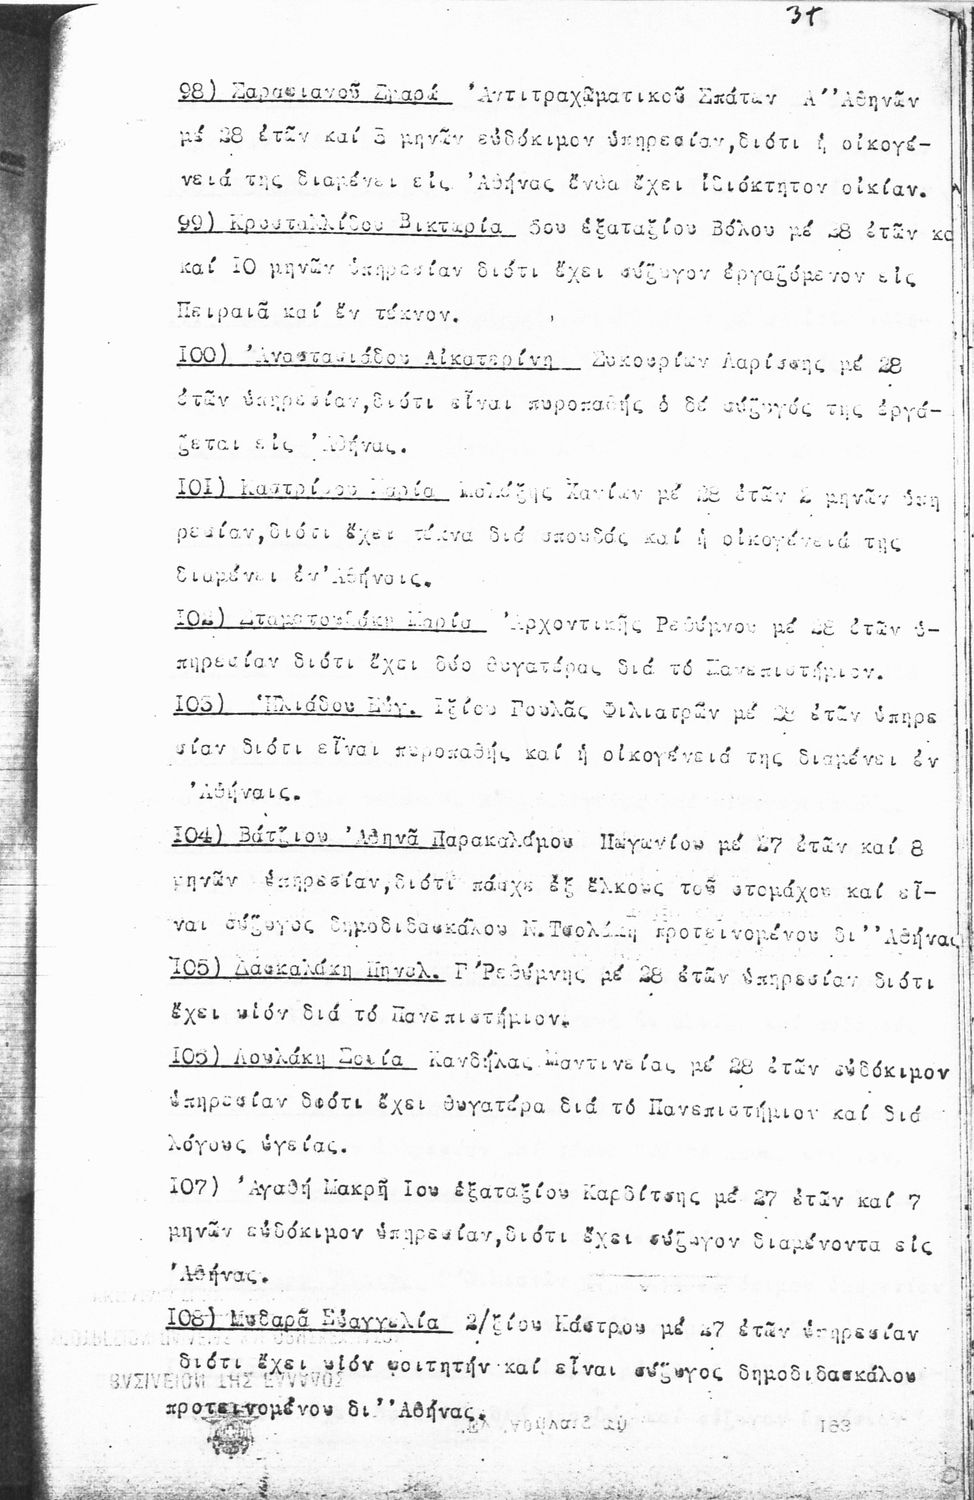 3τ
98) Σαραφιανοῦ Σμαρώ Ἀντιτραχωματικοῦ Σπάτων Α''Ἀθηνῶν
μέ 28 ἐτῶν καί 3 μηνῶν εὐδόκιμον ὑπηρεσίαν,διότι ἡ οἰκογέ-
νειά της διαμένει εἰς Ἀθήνας ἔνθα ἔχει ἰδιόκτητον οἰκίαν.
99) Κρυσταλλίδου Βικτωρία 5ου ἑξαταξίου Βόλου μέ 28 ἐτῶν κα
καί IO μηνῶν ὑπηρεσίαν διότι ἔχει σύζυγον ἐργαζόμενον εἰς
Πειραιᾶ καί ἕν τέκνον.
IOO) Ἀναστασιάδου Αἰκατερίνη Συκουρίων Λαρίσσης μέ 28
ἐτῶν ὑπηρεσίαν,διότι εἶναι πυροπαθής ὁ δέ σύζυγός της ἐργά-
ζεται εἰς Ἀθήνας.
IOI) Καστρίνου Μαρία Μαλάξης Χανίων μέ 28 ἐτῶν 2 μηνῶν ὑπη
ρεσίαν,διότι ἔχει τέκνα διά σπουδάς καί ἡ οἰκογένειά της
διαμένει ἐν Ἀθήναις.
IO2) Σταματουλάκη Μαρία Ἀρχοντικῆς Ρεθύμνου μέ 28 ἐτῶν ὑ-
πηρεσίαν διότι ἔχει δύο θυγατέρας διά τό Πανεπιστήμιον.
IO3) Ἡλιάδου Εὐγ. Iξίου Γουλᾶς Φιλιατρῶν μέ 28 ἐτῶν ὑπηρε
σίαν διότι εἶναι πυροπαθής καί ἡ οἰκογένειά της διαμένει ἐν
Ἀθήναις.
IO4) Βάτζιου Ἀθηνᾶ Παρακαλάμου Πωγωνίου μέ 27 ἐτῶν καί 8
μηνῶν ὑπηρεσίαν,διότι πάσχε ἐξ ἕλκους τοῦ στομάχου καί εἶ-
ναι σύζυγος δημοδιδασκάλου Ν.Τσολάκη προτεινομένου δι''Ἀθήνας
IO5) Δασκαλάκη Πηνελ. Γ'Ρεθύμνης μέ 28 ἐτῶν ὑπηρεσίαν διότι
ἔχει υἱόν διά τό Πανεπιστήμιον.
IO6) Λουλάκη Σοφία Κανδήλας Μαντινείας μέ 28 ἐτῶν εὐδόκιμον
ὑπηρεσίαν διότι ἔχει θυγατέρα διά τό Πανεπιστήμιον καί διά
λόγους ὑγείας.
IO7) Ἀγαθή Μακρῆ Iου ἑξαταξίου Καρδίτσης μέ 27 ἐτῶν καί 7
μηνῶν εὐδόκιμον ὑπηρεσίαν,διότι ἔχει σύζυγον διαμένοντα εἰς
Ἀθήνας.
IO8) Μυδαρᾶ Εὐαγγελία 2/ξίου Κάστρου μέ 27 ἐτῶν ὑπηρεσίαν
διότι ἔχει υἱόν φοιτητήν καί εἶναι σύζυγος δημοδιδασκάλου
προτεινομένου δι''Ἀθήνας.